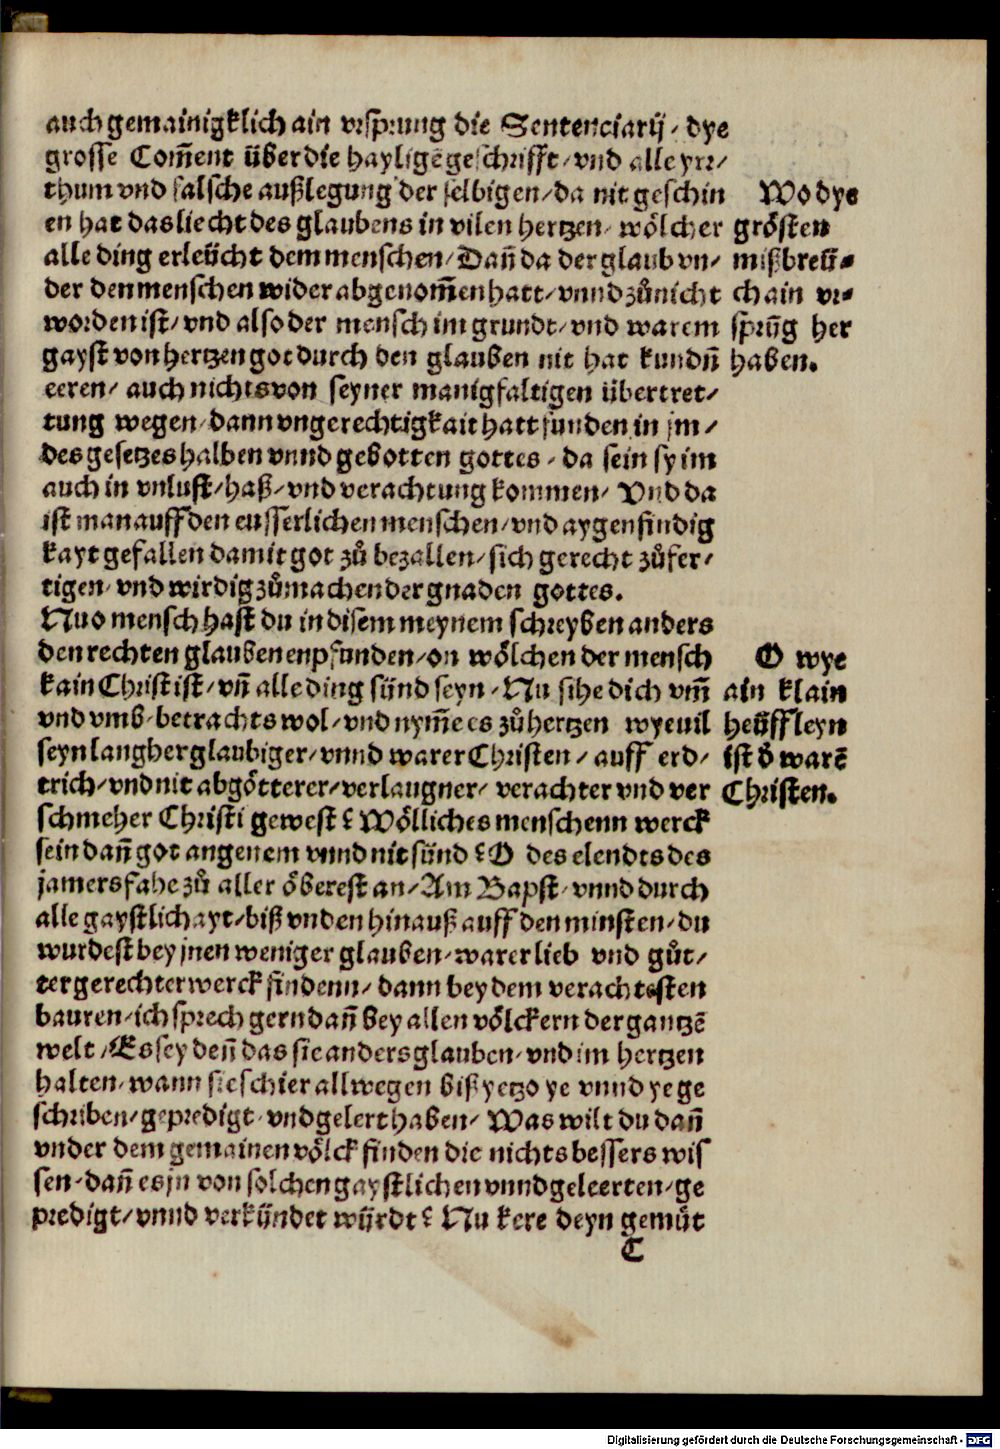 auch gemainigklich ain vrsprung die Sentenciarij / dye
grosse Com̄ent über die hayligē geschrifft / vnd alle yrr/
thum vnd falsche außlegung der selbigen / da nit geschin
en hat das liecht des glaubens in vilen hertzen / wölcher
alle ding erleücht dem menschen / Dañ da der glaub vn/
der den menschen wider abgenom̄en hatt / vnnd zůnicht
worden ist / vnd also der mensch im grundt / vnd warem
gayst von hertzen got durch den glauben nit hat kundñ
eeren / auch nichts von seyner manigfaltigen übertret/
tung wegen / dann vngerechtigkait hatt funden in jm /
des gesetzes halben vnnd gebotten gottes / da sein sy im
auch in vnlust / haß / vnd verachtung kommen / Vnd da
ist man auff den eusserlichen menschen / vnd aygen findig
kayt gefallen damit got zů bezallen / sich gerecht zůfer/
tigen / vnd wirdig zůmachen der gnaden gottes.
Nu o mensch hast du in disem meynem schreyben anders
den rechten glauben enpfunden / on wölchen der mensch
kain Christ ist / vñ alle ding sünd seyn / Nu sihe dich vm̄
vnd vmb / betrachts wol / vnd nym̄e es zů hertzen wyeuil
seyn langher glaubiger / vnnd warer Christen / auff erd/
trich / vnd nit abgötterer / verlaugner / verachter vnd ver
schmeher Christi gewest? Wölliches menschenn werck
sein dañ got angenem vnnd nit sünd? O des elendts des
jamers fahe zů aller öberest an / Am Bapst / vnnd durch
alle gaystlichayt / biß vnden hinauß auff den minsten / du
wurdest bey jnen weniger glauben / warer lieb vnd gůt/
ter gerechter werck findenn / dann bey dem verachtesten
bauren / ich sprech gern dañ bey allen völckern der gantzē
welt / Es sey deñ das sie anders glauben / vnd im hertzen
halten / wann sie schier allwegen biß yetzo ye vnnd ye ge
schriben / gepredigt / vnd gelert haben / Was wilt du dañ
vnder dem gemainen völck finden die nichts bessers wis
sen / dañ es jn von solchen gaystlichen vnnd geleerten / ge
predigt / vnnd verkündet würdt? Nu kere deyn gemůt
C
Wo dye
grösten
mißbreü/
ch ain vr/
sprūg her
haben.
O wye
ain klain
heüffleyn
ist d̄ warē
Christen.
Digitalisierung gefördert durch die Deutsche Forschungsgemeinschaft - DFG